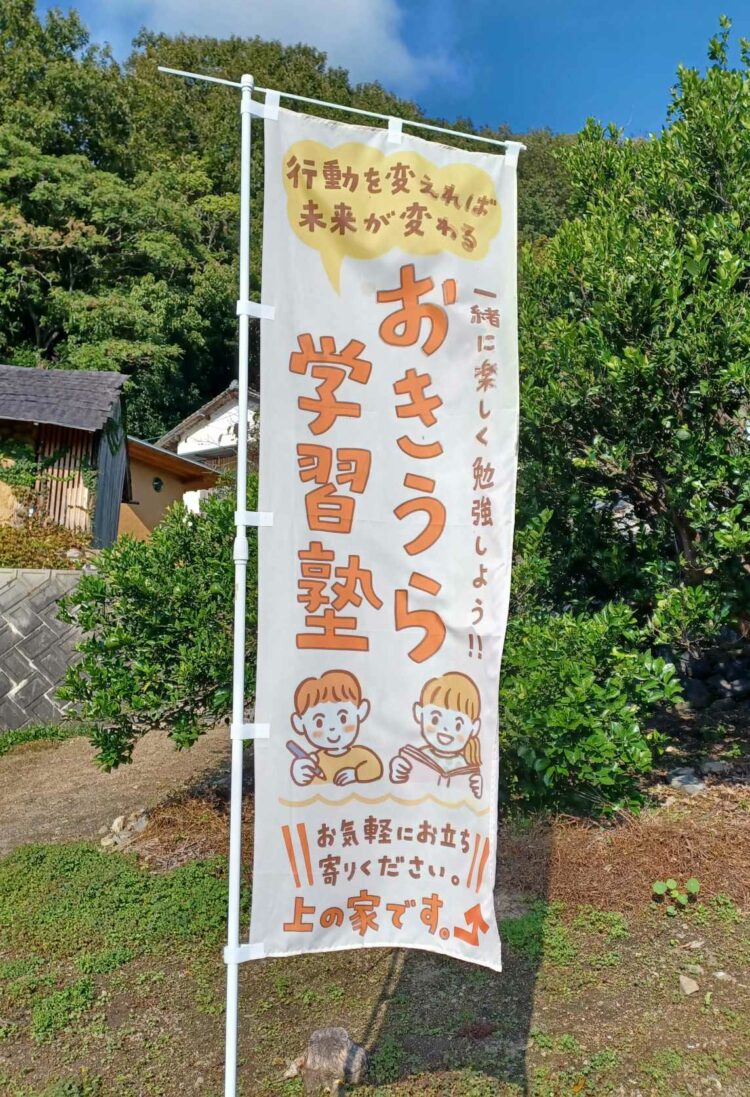 行動を変えれば
未来が変わる
一緒に楽しく勉強しよう!!
おきうら
学習塾
お気軽にお立ち
寄りください。
上の家です。